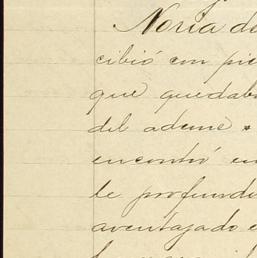 Noria de
cibió con pie
que quedab
del ademe
encontró en
le profund
aventajado